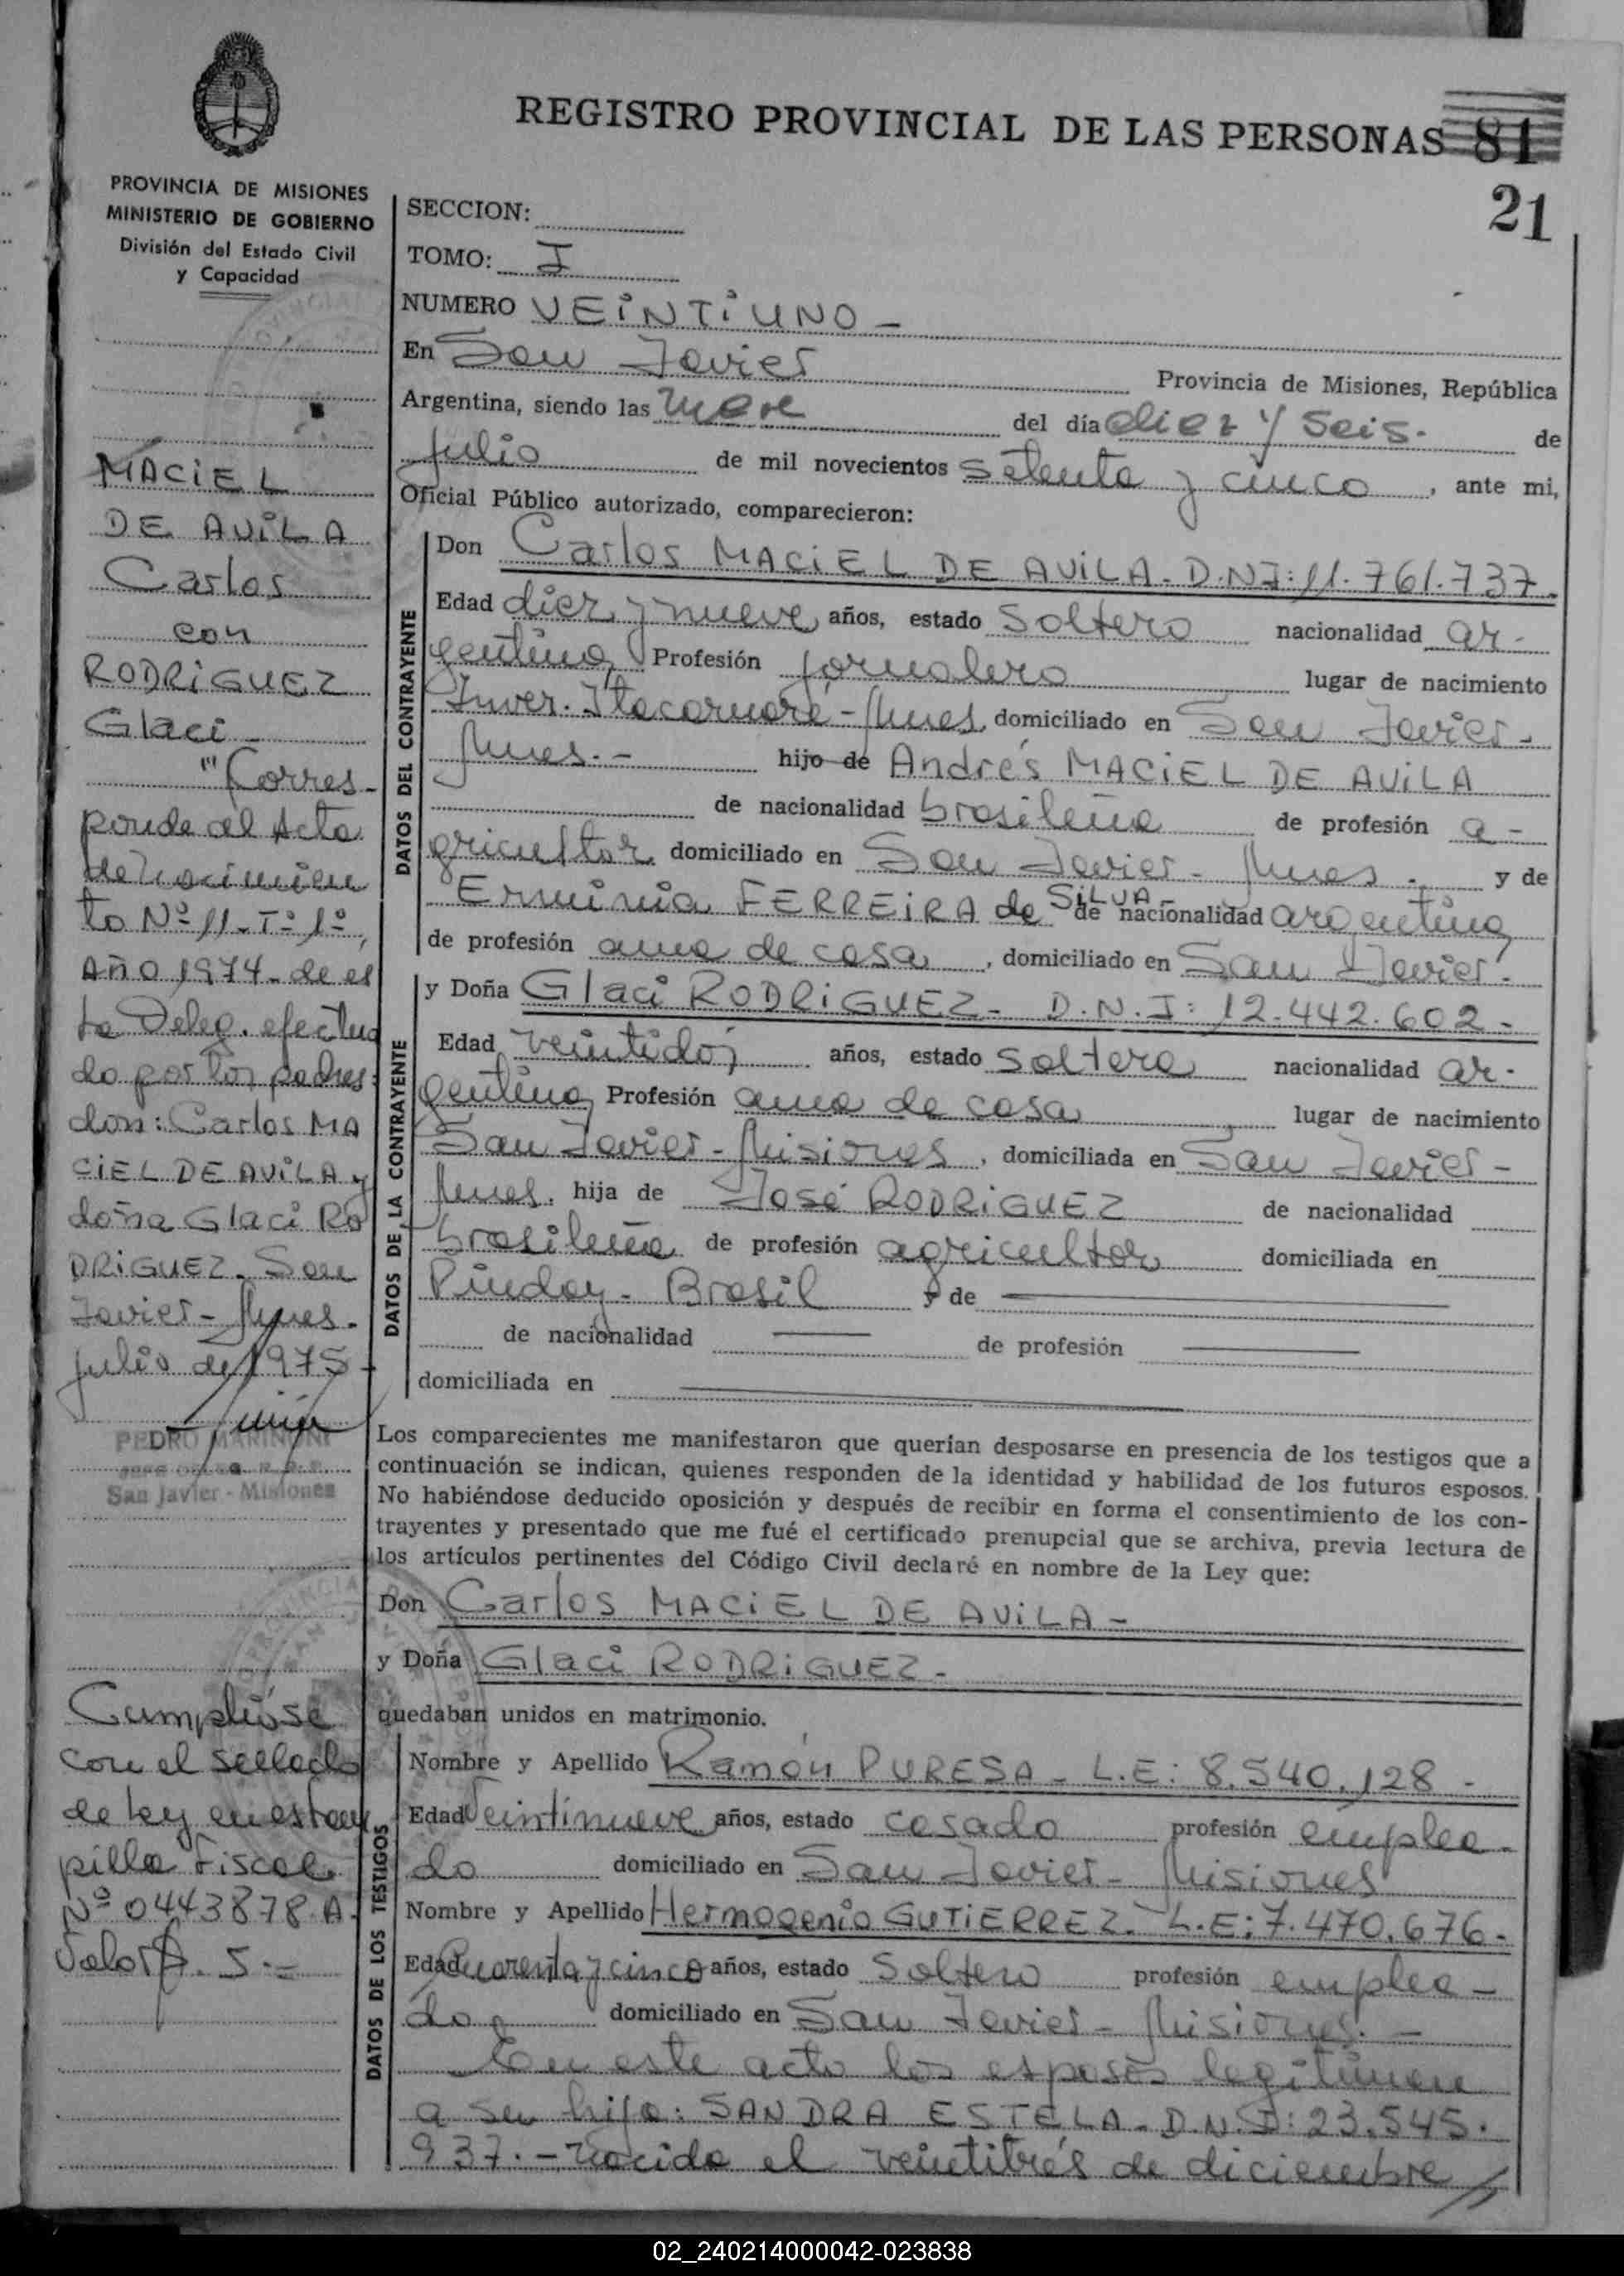 REGISTRO PROVINCIAL DE LAS PERSONAS 81
21
PROVINCIA DE MISIONES
MINISTERIO DE GOBIERNO
División del Estado Civil
y Capacidad
MACIEL
DE AVILA
Carlos
con
RODRIGUEZ
Glaci -
"Corres-
ponde al Acta
de nacimien
to Nº 11 - Tº 1º,
Año 1974 - de es
ta Deleg. efectua
do por los padres:
don: Carlos MA
CIEL DE AVILA y
doña Glaci RO
DRIGUEZ. San
Javier - Mnes.
julio de 1975 -
PEDRO MARINONI
San Javier - Misiones
Cumplióse
con el sellado
de ley en estam
pilla Fiscal
Nº 0443878 A.
Valor $. 5.=
SECCION:
TOMO: I
NUMERO VEINTIUNO -
En San Javier Provincia de Misiones, República
Argentina, siendo las nueve del día diez y seis. de
julio de mil novecientos setenta y cinco, ante mi,
Oficial Público autorizado, comparecieron:
DATOS DEL CONTRAYENTE
Don Carlos MACIEL DE AVILA - D.N.I: 11.761.737.
Edad diez y nueve años, estado soltero nacionalidad ar-
gentina Profesión jornalero lugar de nacimiento
Itacaruaré - Mnes, domiciliado en San Javier -
Mnes. - hijo de Andrés MACIEL DE AVILA
de nacionalidad brasileña de profesión a-
gricultor domiciliado en San Javier - Mnes. y de
Erminia FERREIRA de SILVA - de nacionalidad argentina
de profesión ama de casa, domiciliado en San Javier.
DATOS DE LA CONTRAYENTE
y Doña Glaci RODRIGUEZ - D.N.I: 12.442.602 -
Edad veintidós años, estado soltera nacionalidad ar-
gentina Profesión ama de casa lugar de nacimiento
San Javier - Misiones, domiciliada en San Javier -
Mnes. hija de José RODRIGUEZ de nacionalidad
brasileña de profesión agricultor domiciliada en
Pinday - Brasil y de
de nacionalidad de profesión
domiciliada en
Los comparecientes me manifestaron que querían desposarse en presencia de los testigos que a
continuación se indican, quienes responden de la identidad y habilidad de los futuros esposos.
No habiéndose deducido oposición y después de recibir en forma el consentimiento de los con-
trayentes y presentado que me fué el certificado prenupcial que se archiva, previa lectura de
los artículos pertinentes del Código Civil declaré en nombre de la Ley que:
Don Carlos MACIEL DE AVILA -
y Doña Glaci RODRIGUEZ -
quedaban unidos en matrimonio.
DATOS DE LOS TESTIGOS
Nombre y Apellido Ramón PURESA - L.E: 8.540.128 -
Edad Veintinueve años, estado casado profesión emplea-
do domiciliado en San Javier - Misiones
Nombre y Apellido Hermogenio GUTIERREZ - L.E: 7.470.676 -
Edad Cuarenta y cinco años, estado soltero profesión emplea-
do domiciliado en San Javier - Misiones. -
En este acto los esposos legitiman
a su hija: SANDRA ESTELA - D.N.I: 23.545.
937. - nacida el veintitrés de diciembre //
02_240214000042-023838